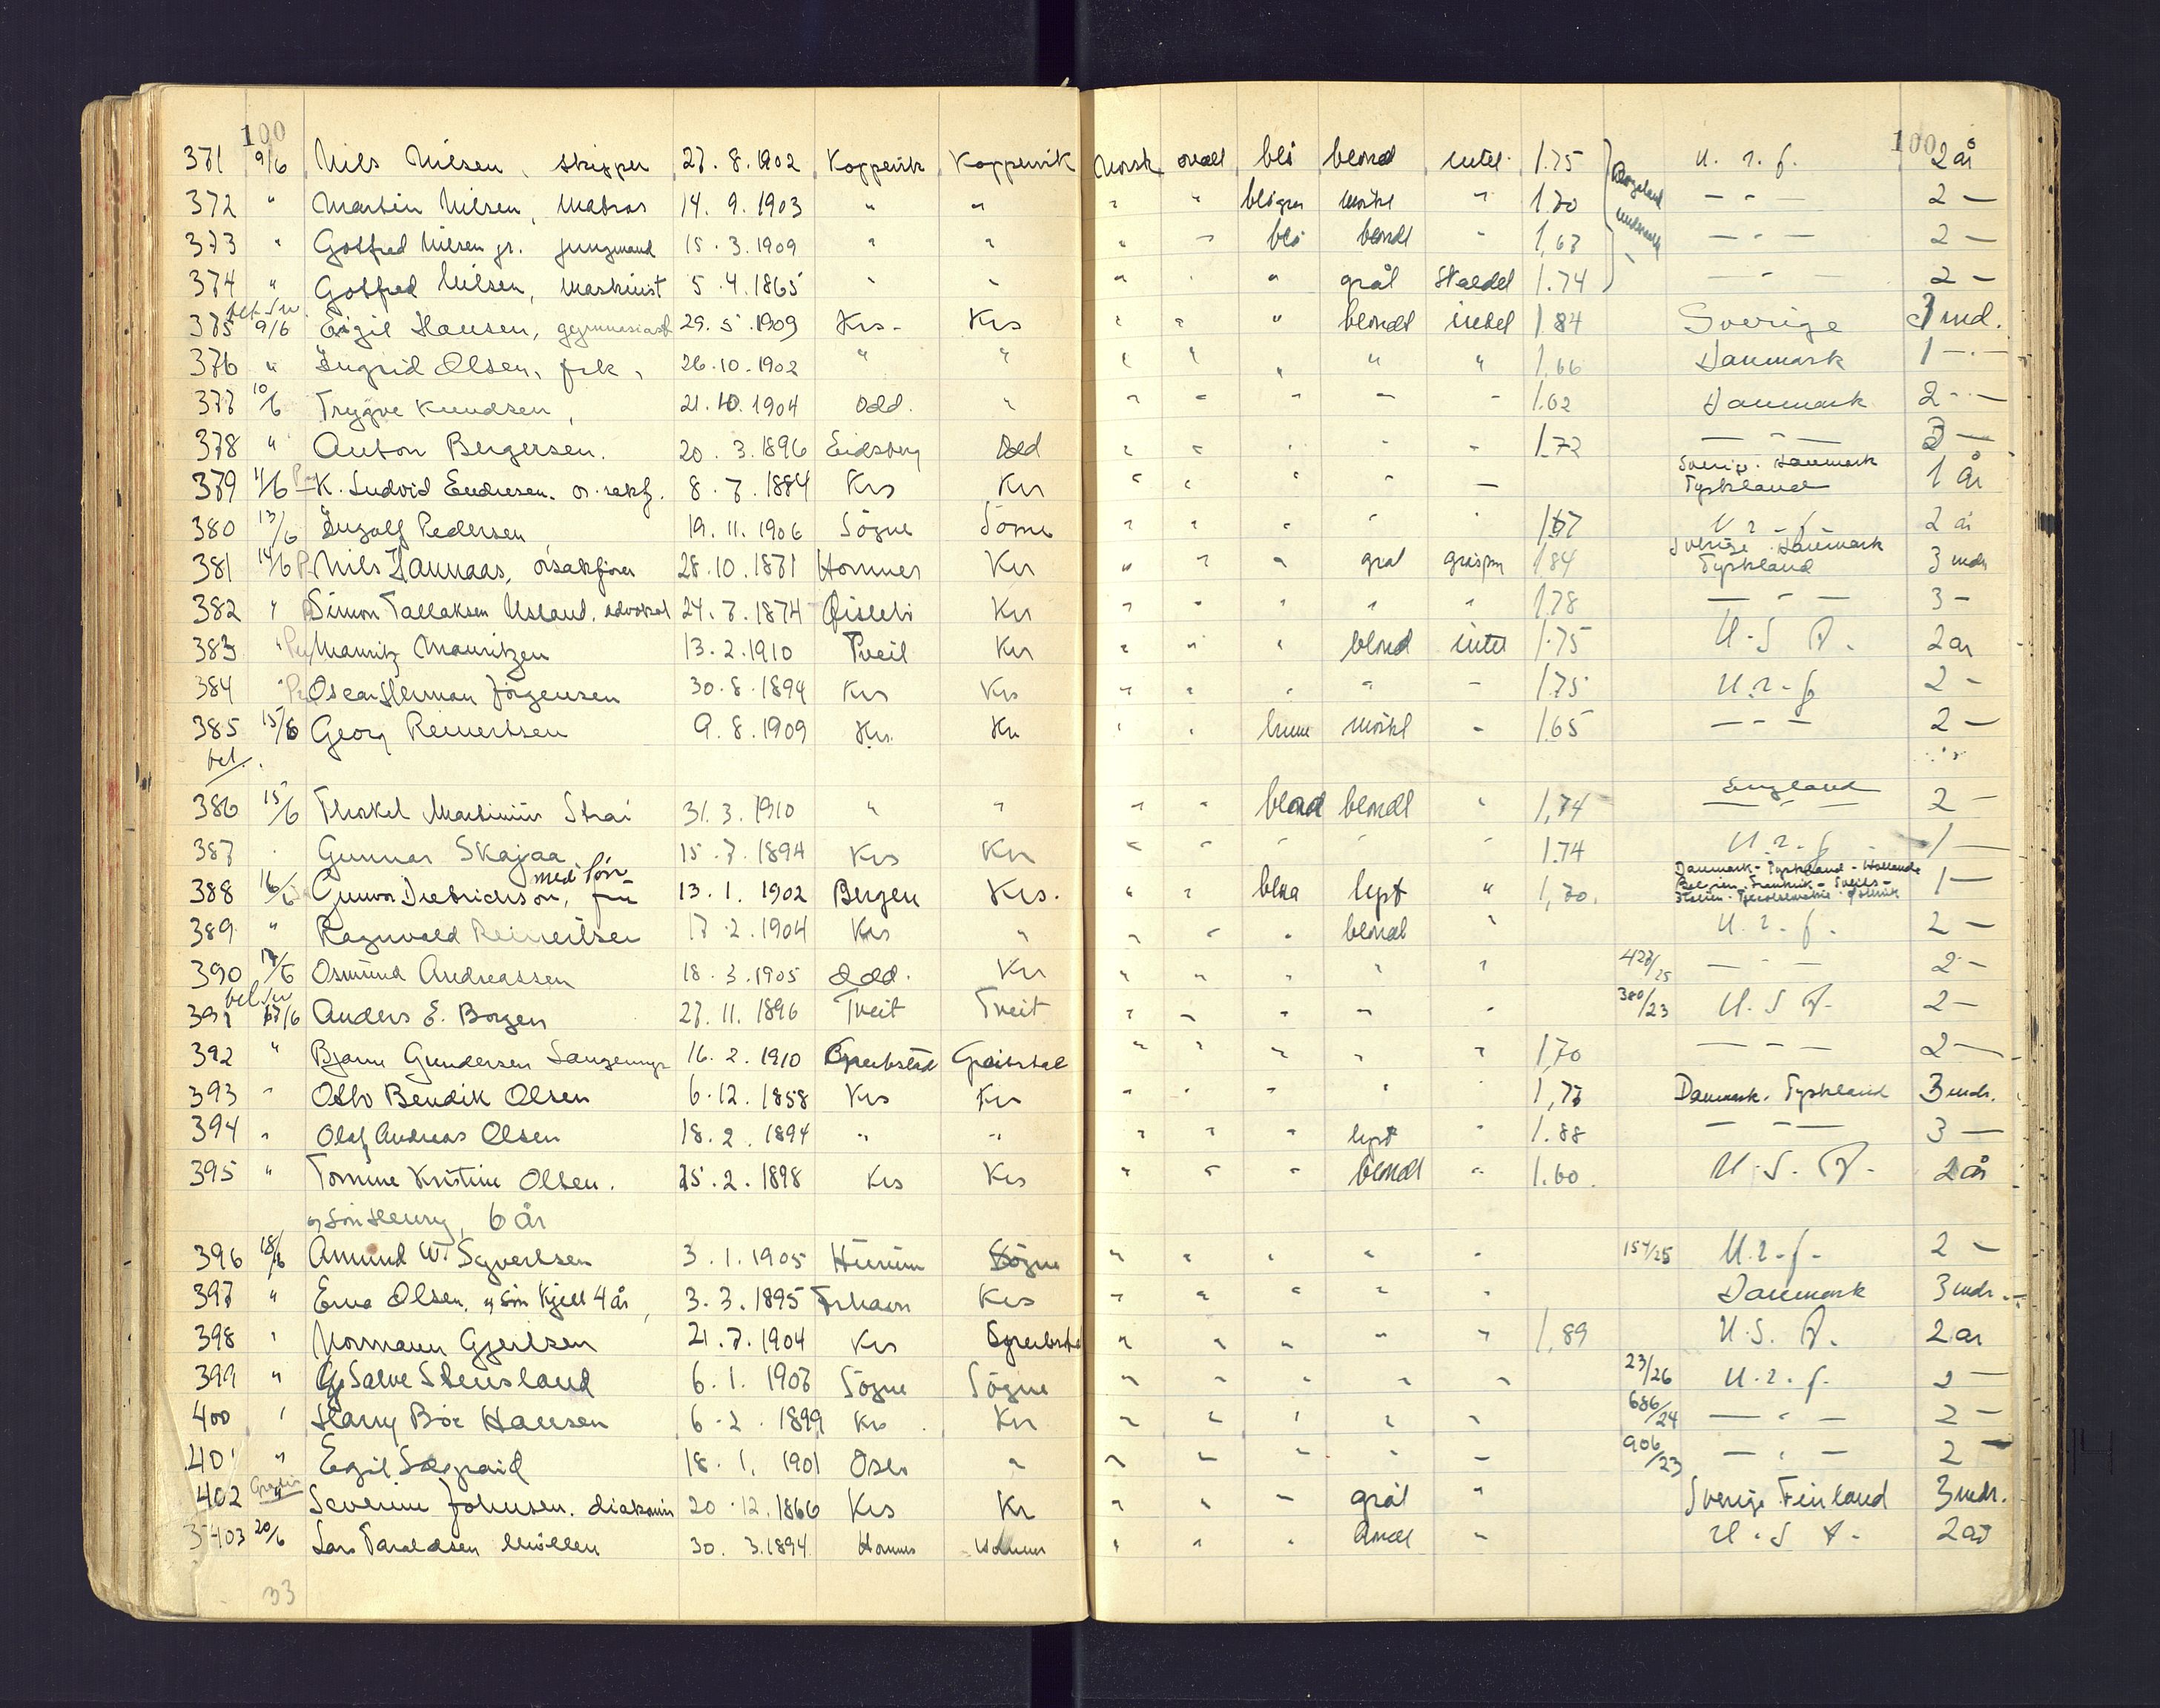 100 100
371 9/6 Nils Nilsen, skipper 27.8.1902 Kopperik Koppervik Norsk ovall blå blond intet 1.75 U.r.f. 2 år
372 " Martin Nilsen, Matros 14.9.1903 " " " " blågrå mörkt " 1.70 — " — 2 —
373 " Gotfred Nilsen jr. jungmand 15.3.1909 " " " " blå blondt " 1,67 — " — 2 —
374 " Gotfred Nilsen, Maskinist 5.4.1865 " " " " " grål 1.74 — " — 2 —
375 9/6 Eigil Hansen, gymnasiast 29.5.1909 Krs- Krs " " " blondt intet 1.84 Sverige 3 md.
376 " Ingrid Olsen, frk, 26.10.1902 " " " " " " " 1,66 Danmark 1 — " —
377 10/6 Trygve Knudsen, 21.10.1904 Odd. " " " " " " 1.62 Danmark 2 - " -
378 " Anton Bergersen. 20.3.1896 Eidsberg Odd " " " " " 1.72 — " — 3 —
Sverige. Danmark
379 11/6 K. Ludvid Endresen. o. sakf. 8.7.1884 Krs Krs " " " " — Tyskland 1 år
380 13/6 Ingolf Pedersen 19.11.1906 Sögne Sögne " " " " 1,67 U.r.f. 2 år
Sverige. Danmark
381 14/6 Nils Hannaas, o'sakförer 28.10.1871 Hommes Krs " " " grål 1.84 Tyskland 3 mdr
382 " Simon Tallaksen Usland. advokat 24.7.1874 Krs " " " " " 1.78 — " — 3 —
383 " Mauritz Mauritzen 13.2.1910 Tveit Krs " " " blond intet 1.75 U.S.A. 2 år
384 " Oscar Herman Jörgensen 30.8.1894 Krs Krs " " " " " 1.75 U.r.f 2 —
385 15/6 Georg Reinertsen 9.8.1909 Krs. Krs " " brune mörkt " 1.65 — " — 2 —
bet.
386 15/6 Thorkel Martinius Strai 31.3.1910 " " " " blond blondt " 1,74 England 2 —
387 " Gunnar Skajaa 15.7.1894 Krs Krs " " " " " 1.74 U.r.f 1 —
med sön Danmark - Tyskland - Holland
388 16/6 Gunvor Diedrichson, fru 13.1.1902 Bergen Krs. " " blaa lyst " 1,70. Belgien. Frankrik - Sveits - 1 —
389 " Ragnvald Reinertsen 17.2.1904 Krs " " " " blondt " U.r.f. 2 —
390 17/6 Osmund Andreassen 18.3.1905 Odd. Krs " " " " " 427/25 — " — 2 —
391 17/6 Anders E. Borgen 27.11.1896 Tveit Tveit " " " " " 380/23 U.S.A. 2 —
392 " Bjarne Gundersen 16.2.1910 " " " " " 1,70 — " — 2 —
393 " Otto Bendik Olsen 6.12.1858 Krs Krs " " " " 1,77 Danmark. Tyskland 3 mdr.
394 " Olaf Andreas Olsen 18.2.1894 " " " " " lyst " 1.88 — " — 3 —
395 " Tomine Kristine Olsen. 25.2.1898 Krs Krs " " " blondt " 1.60. U.S.A. 2 år
og sön Henry, 6 år
396 18/6 Amund W. Syvertsen 3.1.1905 Hurum Sögne " " " " " 154/25 U.r.f. 2 —
397 " Erna Olsen, og sön Kjell 4 år, 3.3.1895 Krs " " " " " Danmark 3 mdr.
398 " Normann Gjertsen 21.7.1904 Krs " " " " " 1,89 U.S.A. 2 år
399 " G. Salve Stensland 6.1.1907 Sögne Sögne " " " " " 23/26 U.r.f. 2 —
400 " Harry Boe Hansen 6.2.1899 Krs Krs " " " " " 686/24 — " — 2 —
401 " Egil 18.1.1901 Oslo " " " " " — 906/23 — " — 2 —
402 " Severine Johnsen. diakonis 20.12.1866 Krs Kr " " " grål " Sverige Finland 3 mdr.
403 20/6 Lars Taraldsen Möllen 30.3.1894 Hommes Hommes " " " blondt " U.S.A. 2 år
33